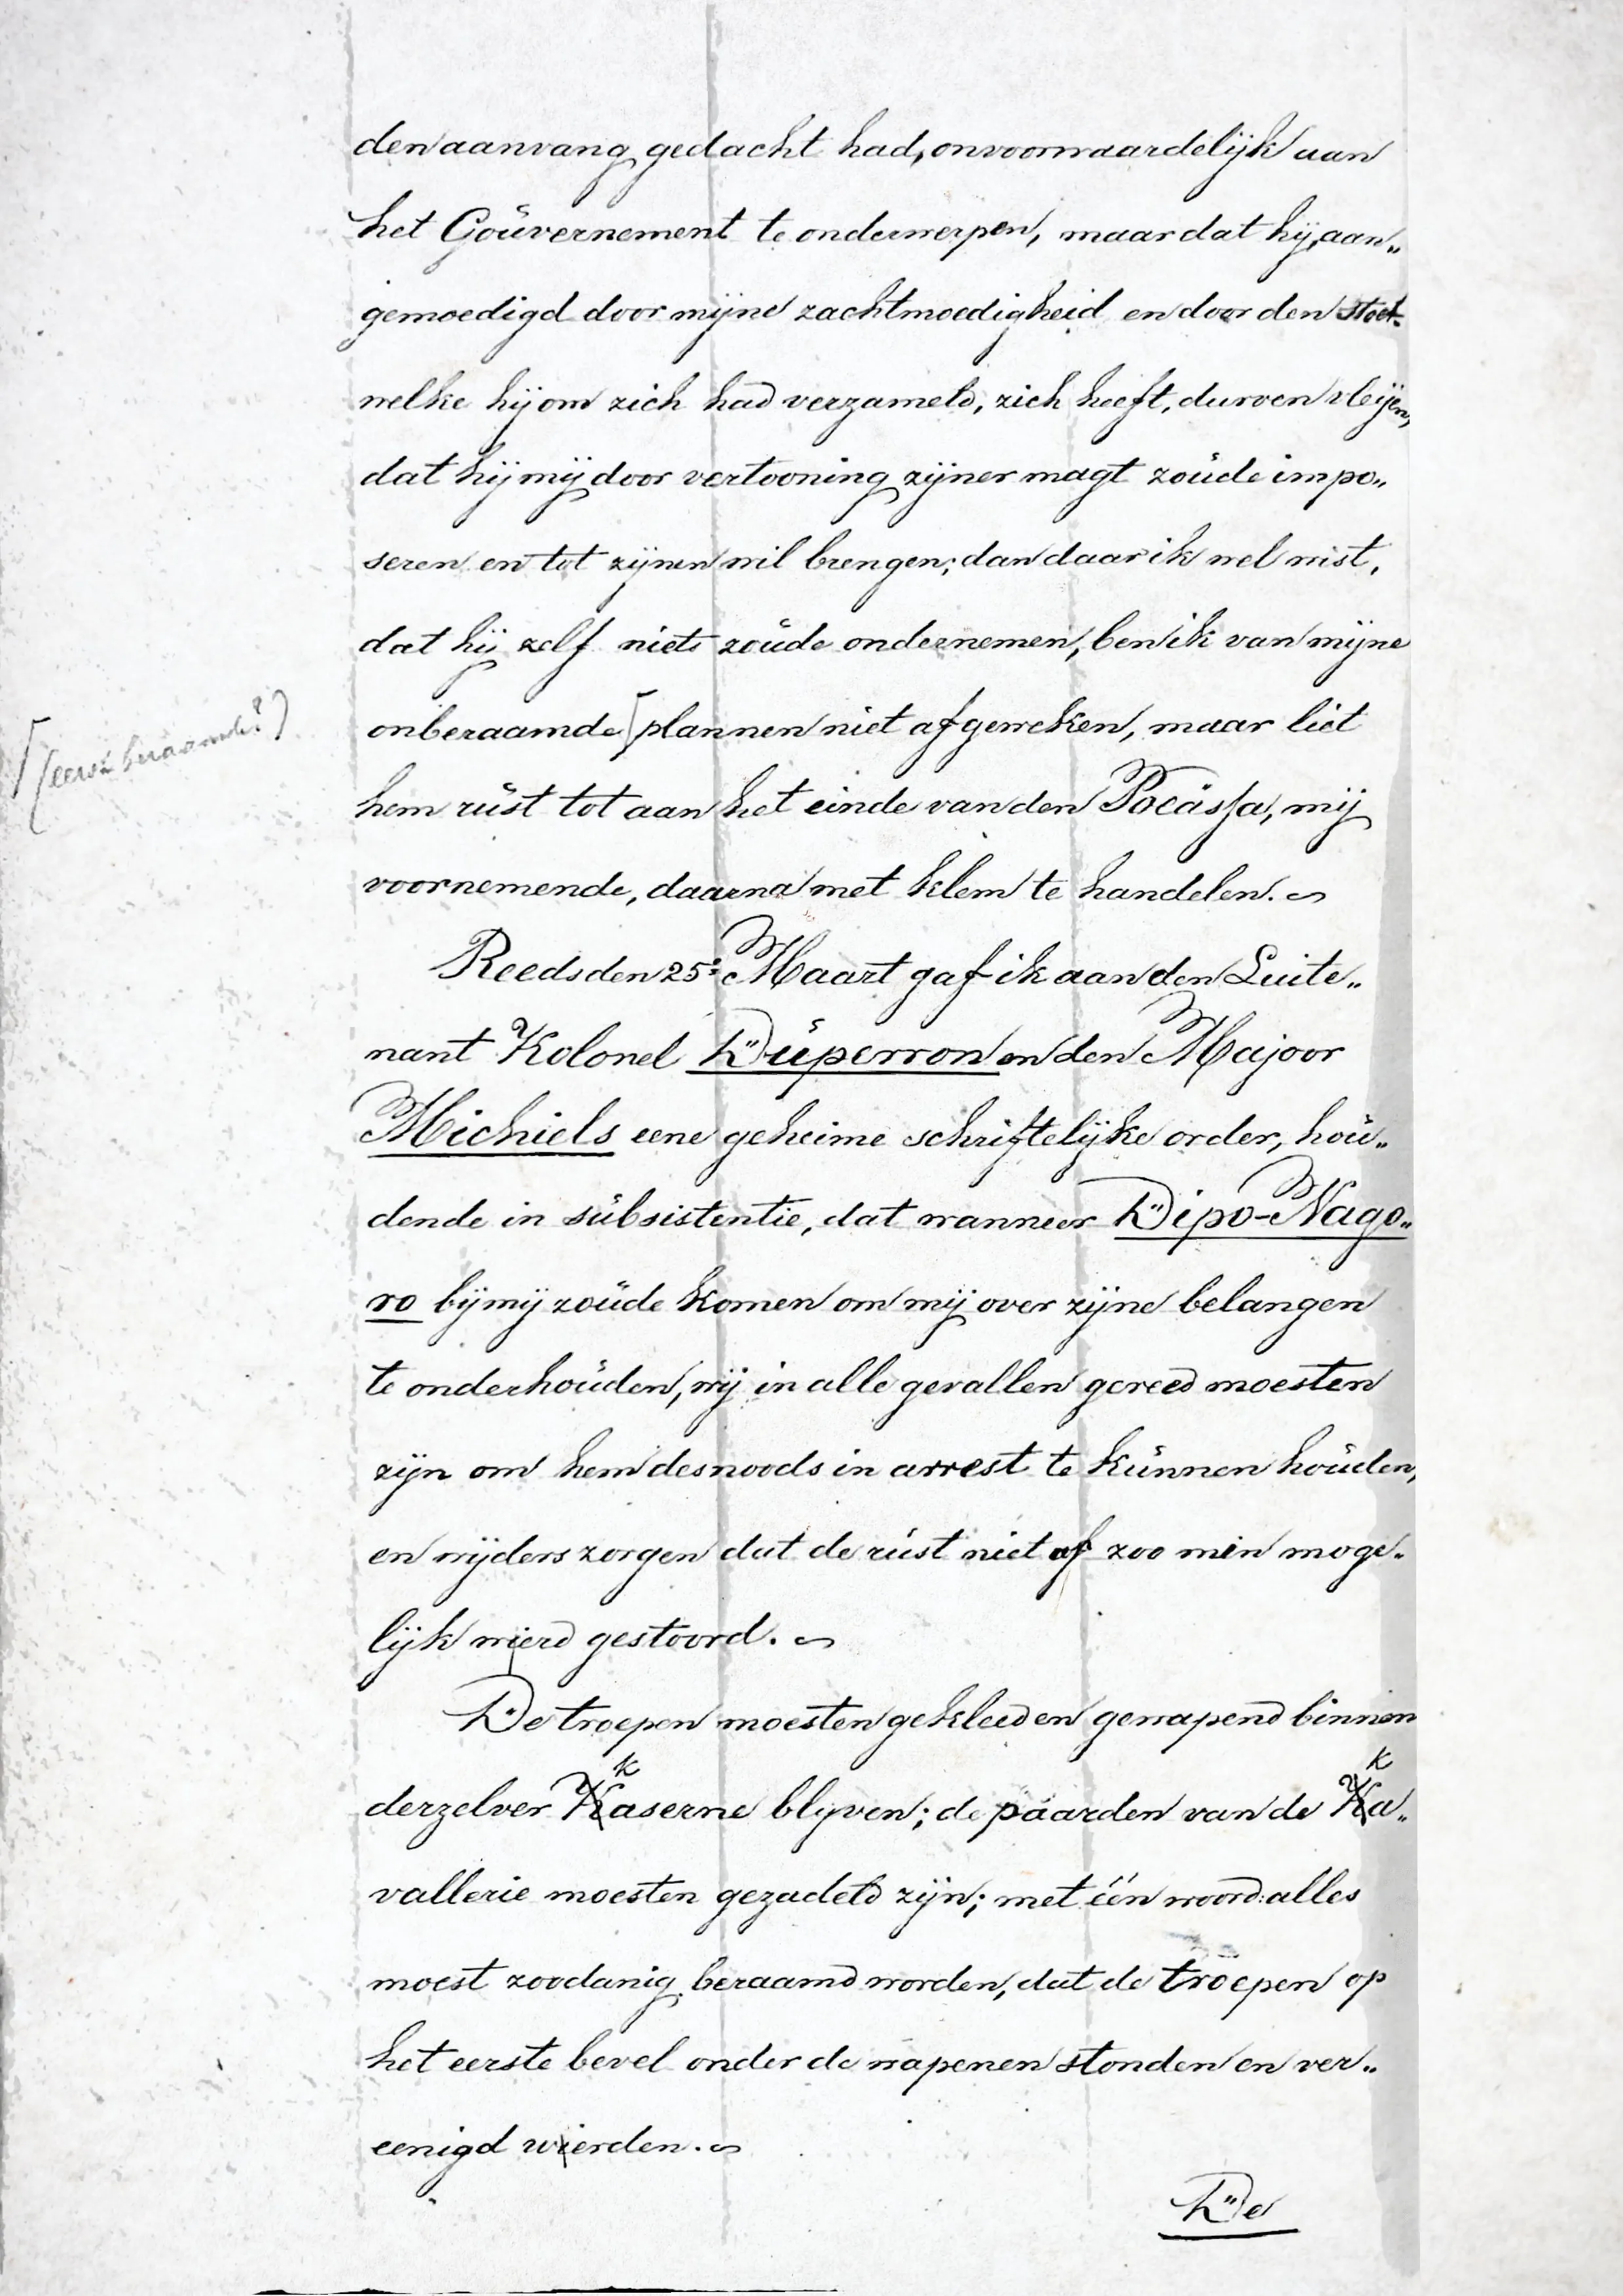 den aanvang gedacht had, onvoorwaardelijk aan
het Goüvernement te onderwerpen, maar dat hij, aan„
gemoedigd door mijne zachtmoedigheid en door den stoet
welke hij om zich had verzameld, zich heeft, durven vleijen,
dat hij mij door vertooning zijner magt zoüde impo„
seren en tot zijnen wil brengen; dan daar ik wel wist,
dat hij zelf niets zoüde ondernemen, ben ik van mijne
onberaamde [plannen niet afgeweken, maar liet
[(eerst beraamde?)
hem rüst tot aan het einde van den Pocässa, mij
voornemende, daarna met klem te handelen.
Reeds den 25e Maart gaf ik aan den Luite„
nant Kolonel Düperron en den Majoor
Michiels eene geheime schriftelijke order, hoü„
dende in sübsistentie, dat wanneer Dipo-Nago„
ro bij mij zoüde komen om mij over zijne belangen
te onderhoüden, wij in alle gevallen gereed moesten
zijn om hem desnoods in arrest te künnen hoüden,
en wijders zorgen dat de rüst niet of zoo min moge„
lijk wierd gestoord.
De troepen moesten gekleed en gewapend binnen
derzelver kaserne blijven; de paarden van de ka„
vallerie moesten gezadeld zijn; met één woord: alles
moest zoodanig beraamd worden, dat de troepen op
het eerste bevel onder de wapenen stonden en ver„
eenigd wierden.
De